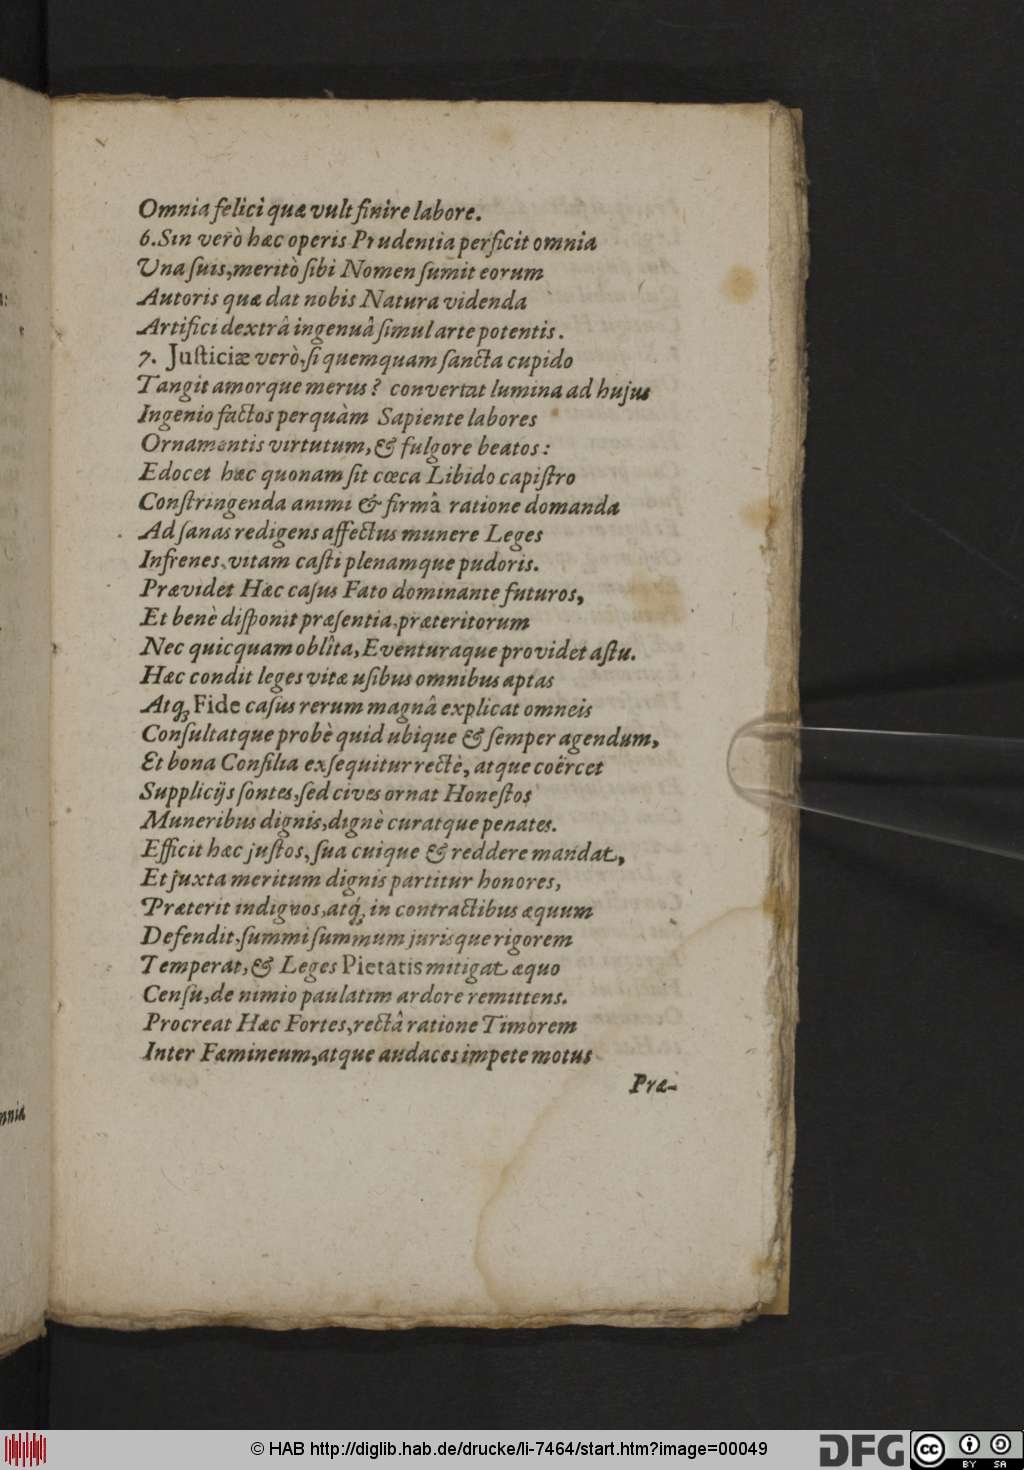 Omnia felici quæ vult finire labore.
6. Sin verò hæc operis Prudentia perficit omnia
Una suis, meritò sibi Nomen sumit eorum
Autoris quæ dat nobis Natura videnda
Artifici dextrâ ingenuâ simul arte potentis.
7. Justiciæ verò, si quemquam sancta cupido
Tangit amorque merus? convertat lumina ad hujus
Ingenio factos perquàm Sapiente labores
Ornamentis virtutum, & fulgore beatos:
Edocet hæc quonam sit cœca Libido capistro
Constringenda animi & firmâ ratione domanda
Ad sanas redigens affectus munere Leges
Infrenes, vitam casti plenamque pudoris.
Prævidet Hæc casus Fato dominante futuros,
Et benè disponit præsentia, præteritorum
Nec quicquam oblîta, Eventuraque providet astu.
Hæc condit leges vitæ usibus omnibus aptas
Atq; Fide casus rerum magnâ explicat omneis
Consultatque probè quid ubique & semper agendum,
Et bona Consilia exsequitur rectè, atque coërcet
Supplicijs sontes, sed cives ornat Honestos
Muneribus dignis, dignè curatque penates.
Efficit hæc justos, sua cuique & reddere mandat,
Et juxta meritum dignis partitur honores,
Præterit indignos, atq; in contractibus æquum
Defendit, summi summum jurisque rigorem
Temperat, & Leges Pietatis mitigat æquo
Censu, de nimio paulatim ardore remittens.
Procreat Hæc Fortes, rectâ ratione Timorem
Inter Fæmineum, atque audaces impete motus
Præ-
omnia
© HAB http://diglib.hab.de/drucke/li-7464/start.htm?image=00049
DFG
cc BY SA